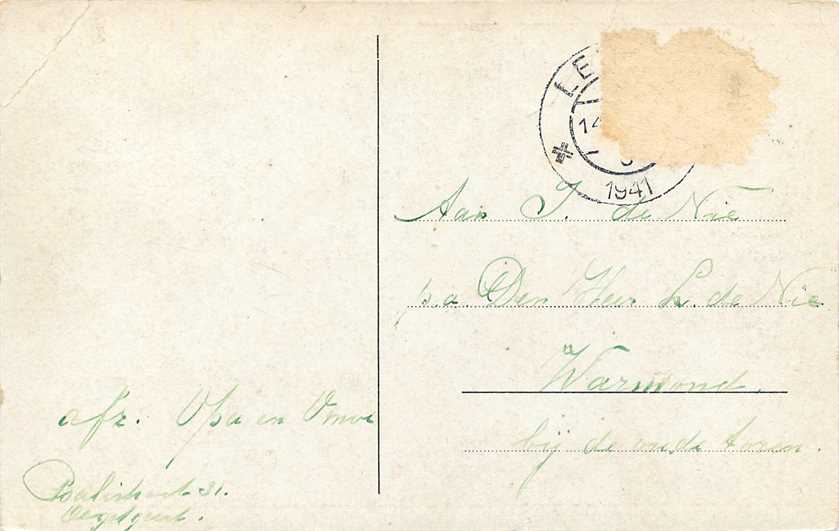 LE
14
1941
Aan J. de Nie
p.a. Den Heer L. de Nie
Warmond.
bij de oude toren.
afz. Opa en Omoe
31.
Oegstgeest.